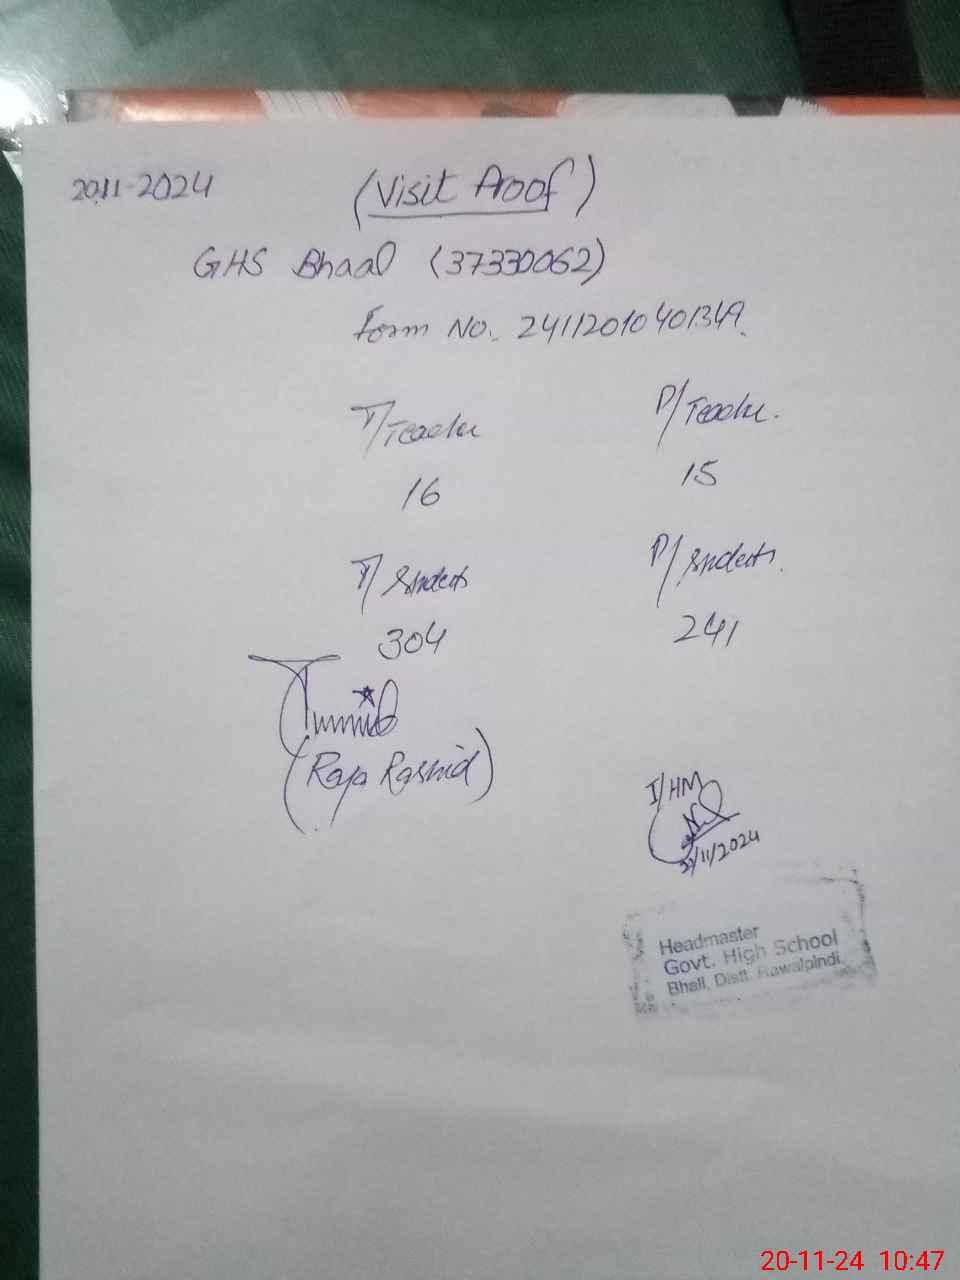 20.11-2024 (Visit Proof)
GHS Bhaal (37330062)
Form No. 24112010401349.
T/Teacher P/Teacher.
16 15
T/Students P/Students.
304 241
(Raja Rashid)
I/HM
20/11/2024
Headmaster
Govt. High School
Bhall, Distt. Rawalpindi.
20-11-24 10:47